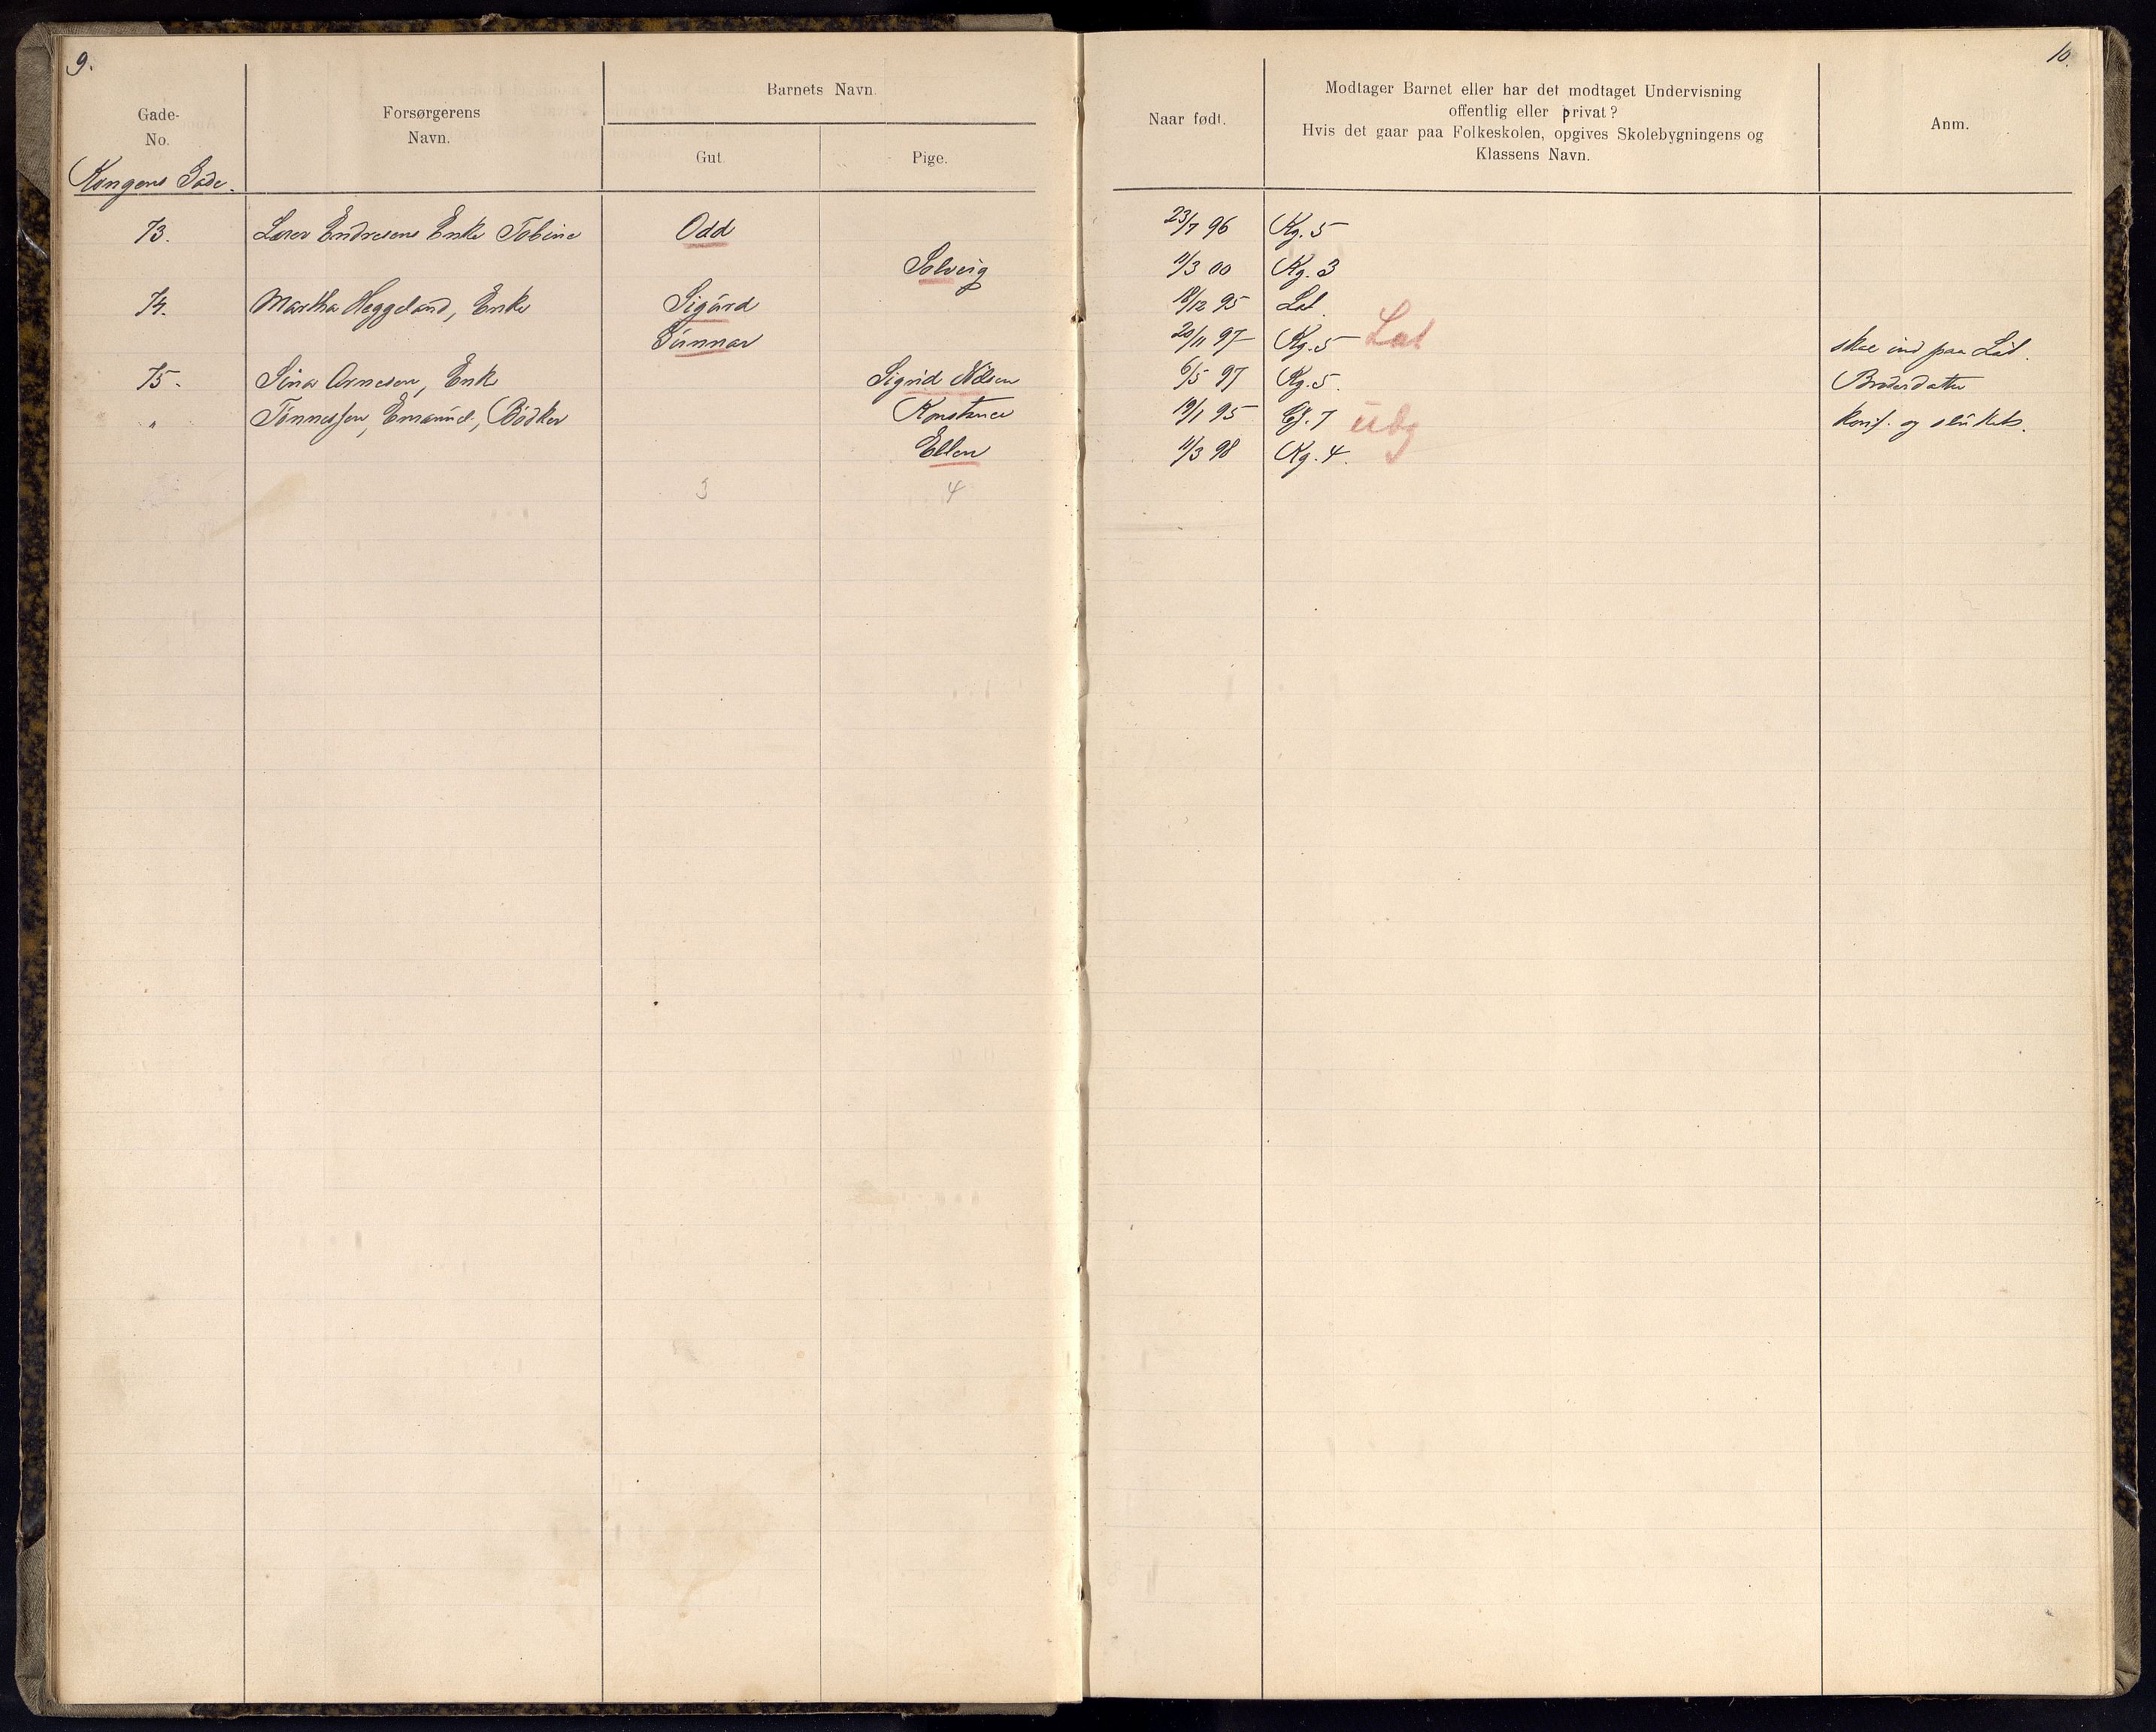 9.
10.
Gade-
No.
Forsørgerens
Navn.
Barnets Navn.
Gut.
Pige.
Naar født.
Modtager Barnet eller har det modtaget Undervisning
offentlig eller privat?
Hvis det gaar paa Folkeskolen, opgives Skolebygningens og
Klassens Navn.
Anm.
Kongens Gade.
73. Lærer Endresens Enke Tobine Odd 23/7 96 Kg. 5
Solveig 11/3 00 Kg. 3
74. Martha Heggeland, Enke Sigurd 18/12 95 Lat.
Gunnar 20/11 97 Kg. 5 Lat skal ind paa Lat.
75. Sina Arnesen, Enke Sigrid Nilsen 6/5 97 Kg. 5. Broderdatter
" Tønnessen, Emanuel, Bødker Konstance 19/1 95 7 udg konf. og sluttet.
Ellen 11/3 98 Kg. 4.
3 4